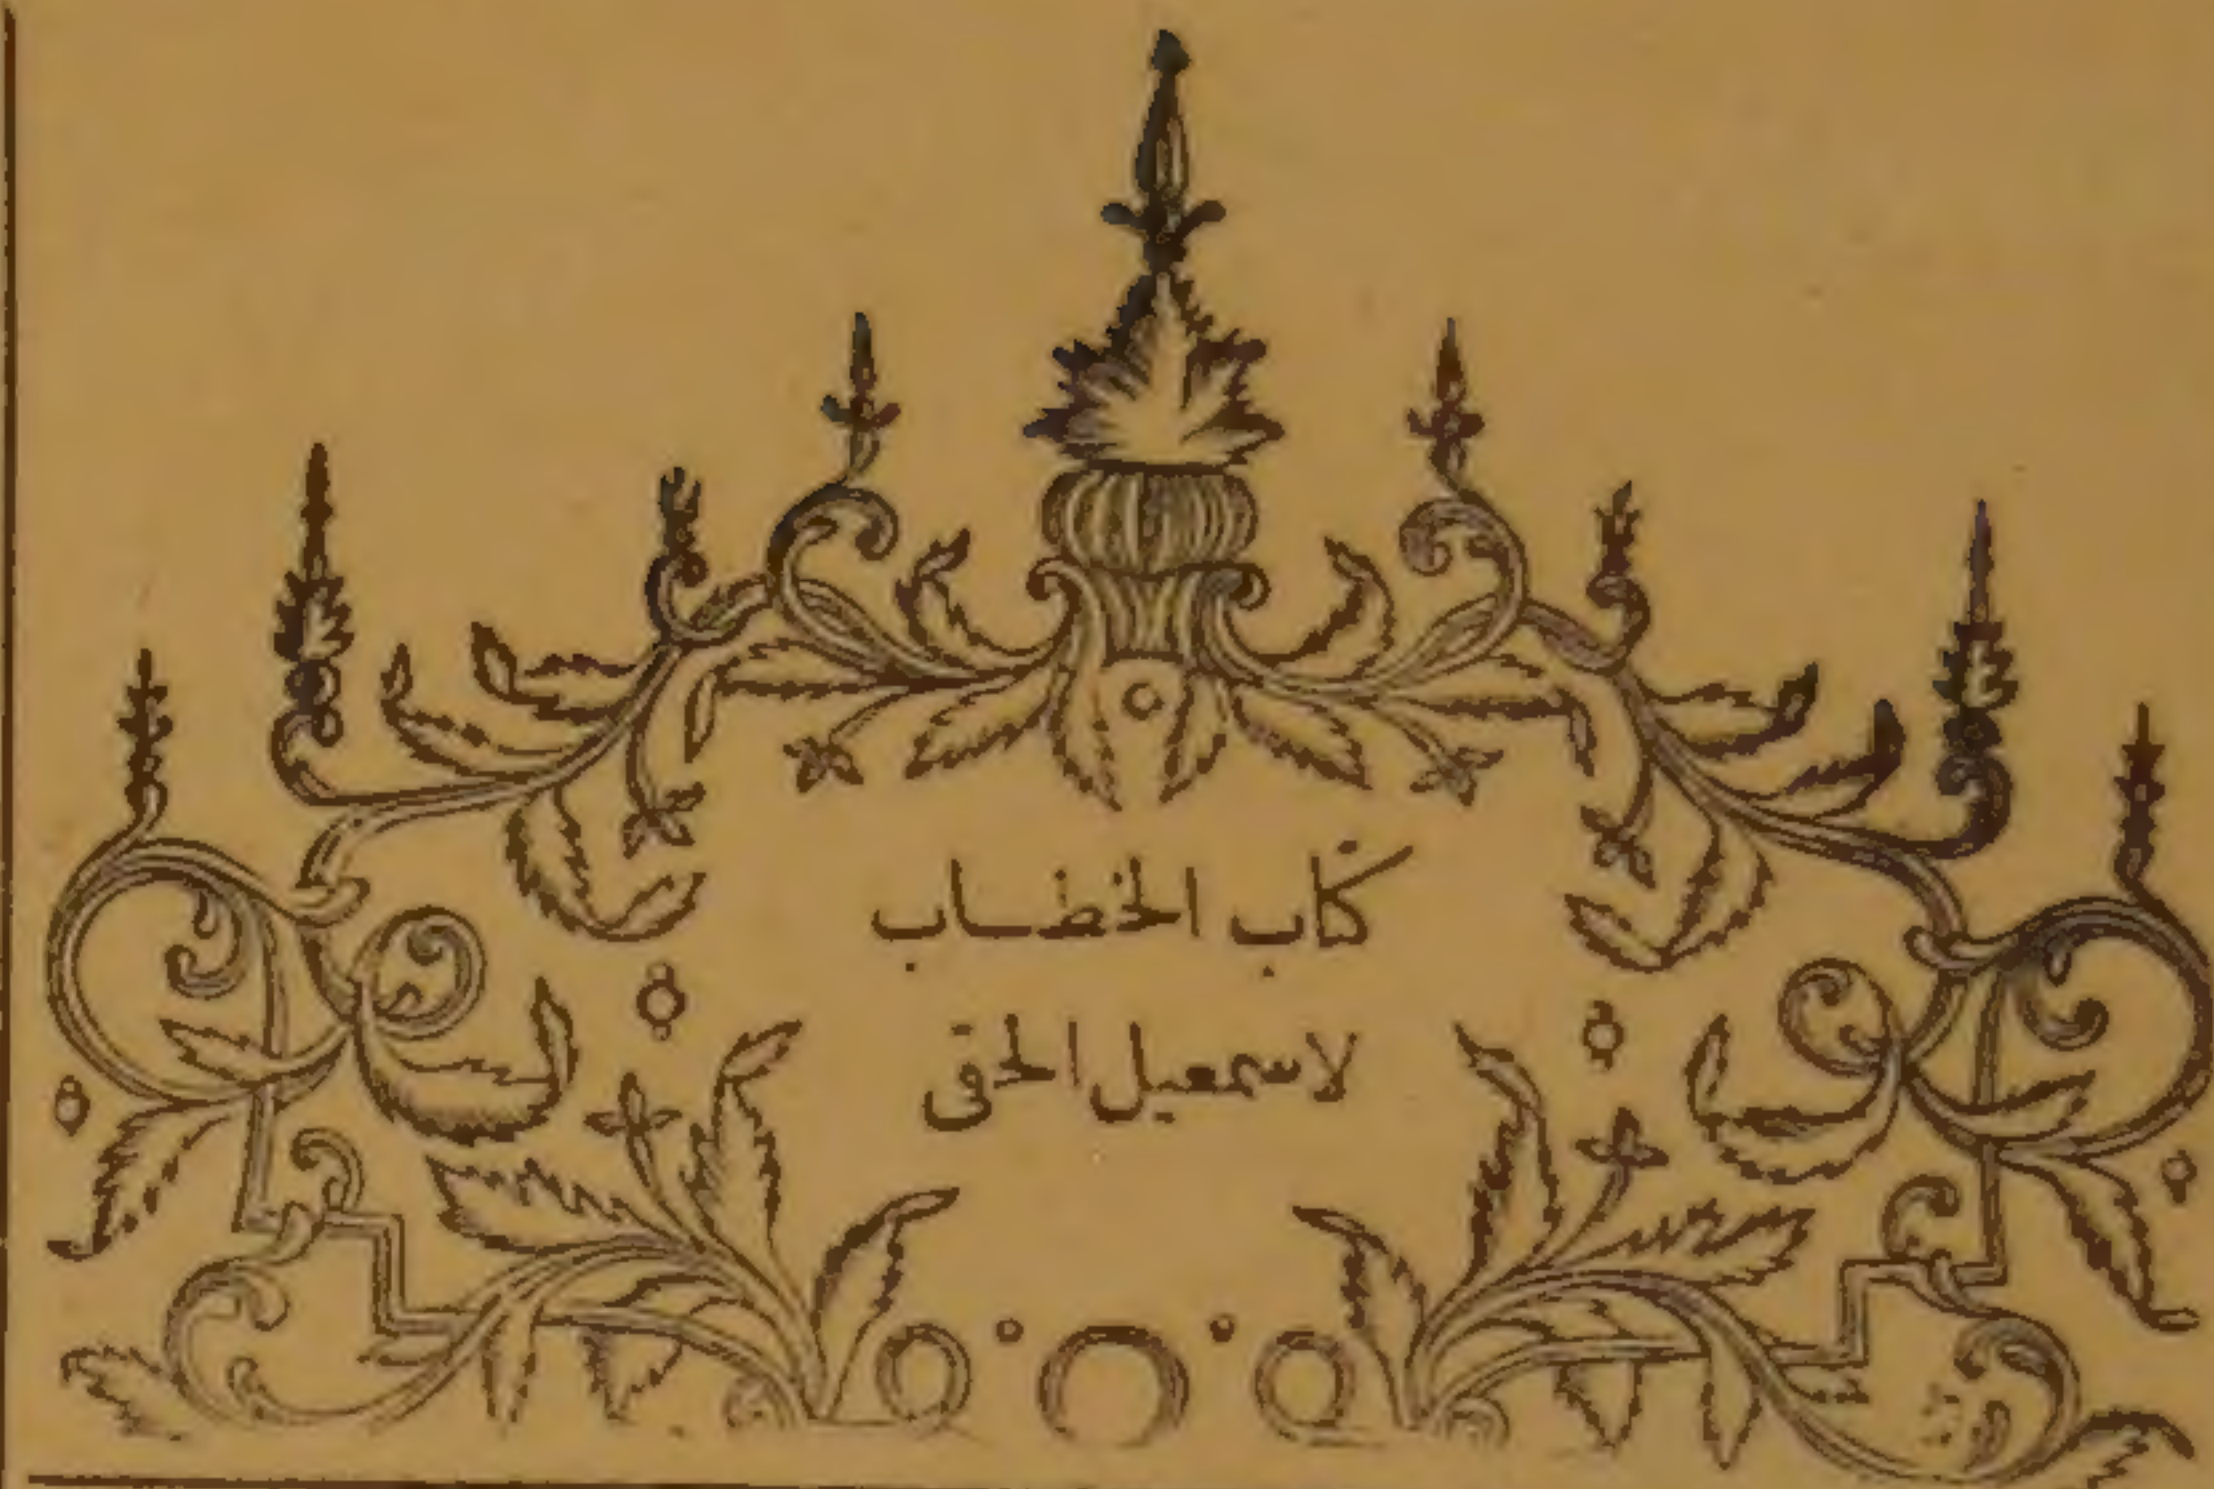 كتاب الخطاب
لاسمعيل الحقى